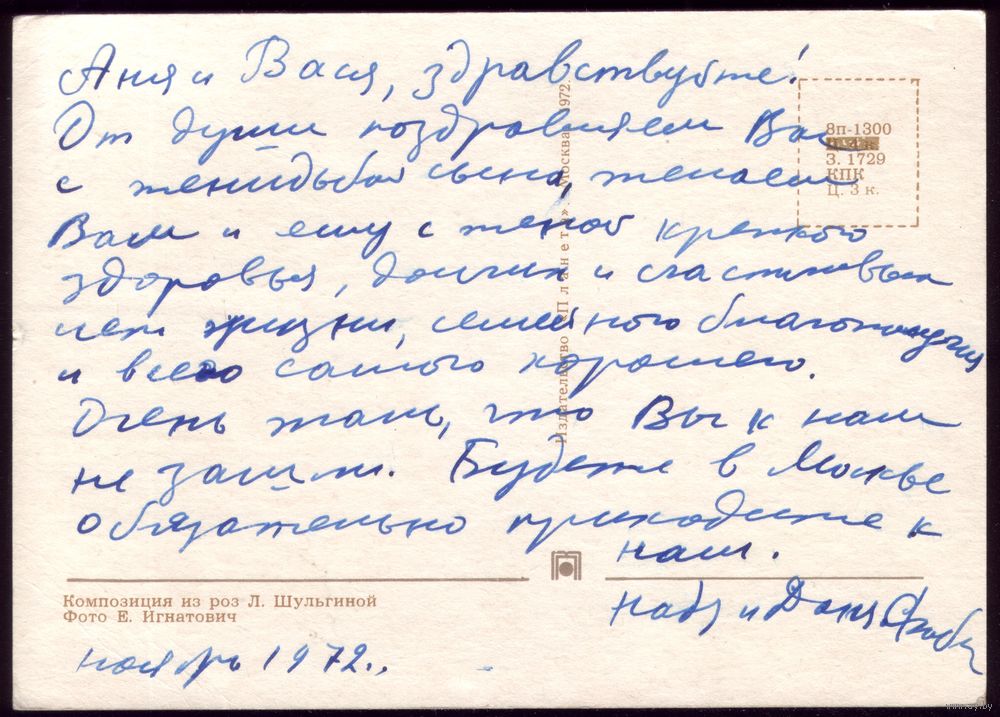 Аня и Вася, здравствуйте!
От души поздравляем Вас
с женидьбой сына, желаем
Вам и ему с женой крепкого
здоровья, долгих и счастливых
лет жизни, семейного благополучия
и всего самого хорошего.
Очень жаль, что Вы к нам
не зашли. Будете в Москве
обязательно приходите к
нам.
Надя и Даня
ноябрь 1972г.
8п-1300
З. 1729
КПК
Ц. 3 к.
Издательство «Планета». Москва. 1972.
Композиция из роз Л. Шульгиной
Фото Е. Игнатович